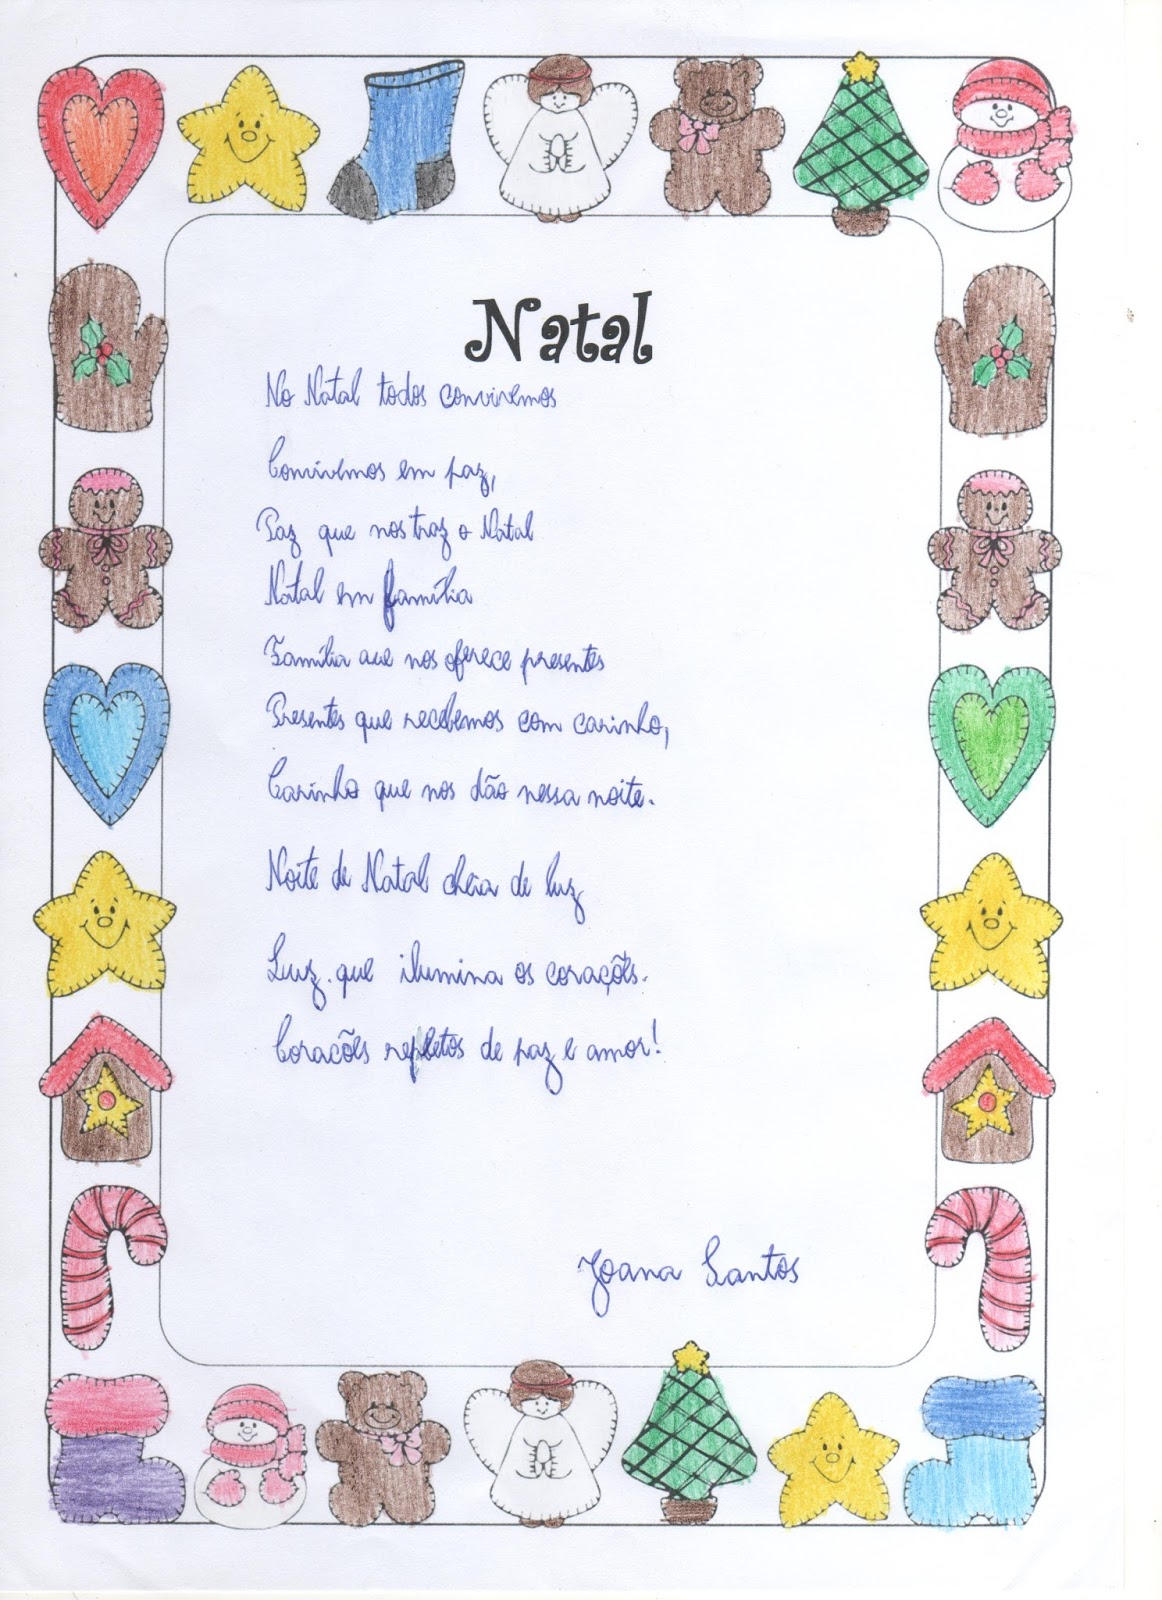 Natal
No Natal todos convivemos
Convivemos em paz,
Paz que nos traz o Natal
Natal em família
Família que nos oferece presentes
Presentes que recebemos com carinho,
Carinho que nos dão nessa noite.
Noite de Natal cheia de luz
Luz que ilumina os corações.
Corações repletos de paz e amor!
Joana Santos